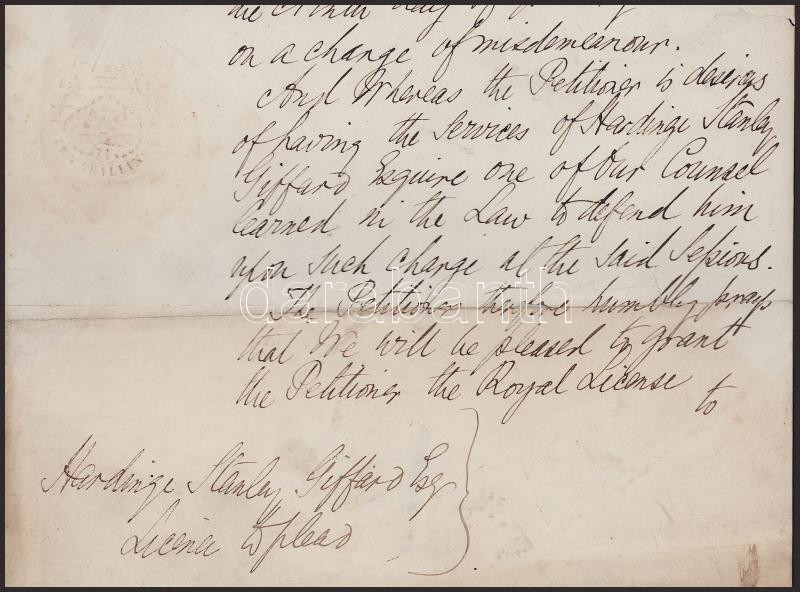 the Ninth day of
on a change of misdemeanour.
And Whereas the Petitioner is desirous
of having the services of Hardinge Stanley
Giffard Esquire one of Our Counsel
learned in the Law to defend him
upon such charge at the said Sessions.
The Petitioner therefore humbly prays
that We will be pleased to grant
the Petitioner the Royal License
to
Hardinge Stanley Giffard Esq
License to plead
darabanth